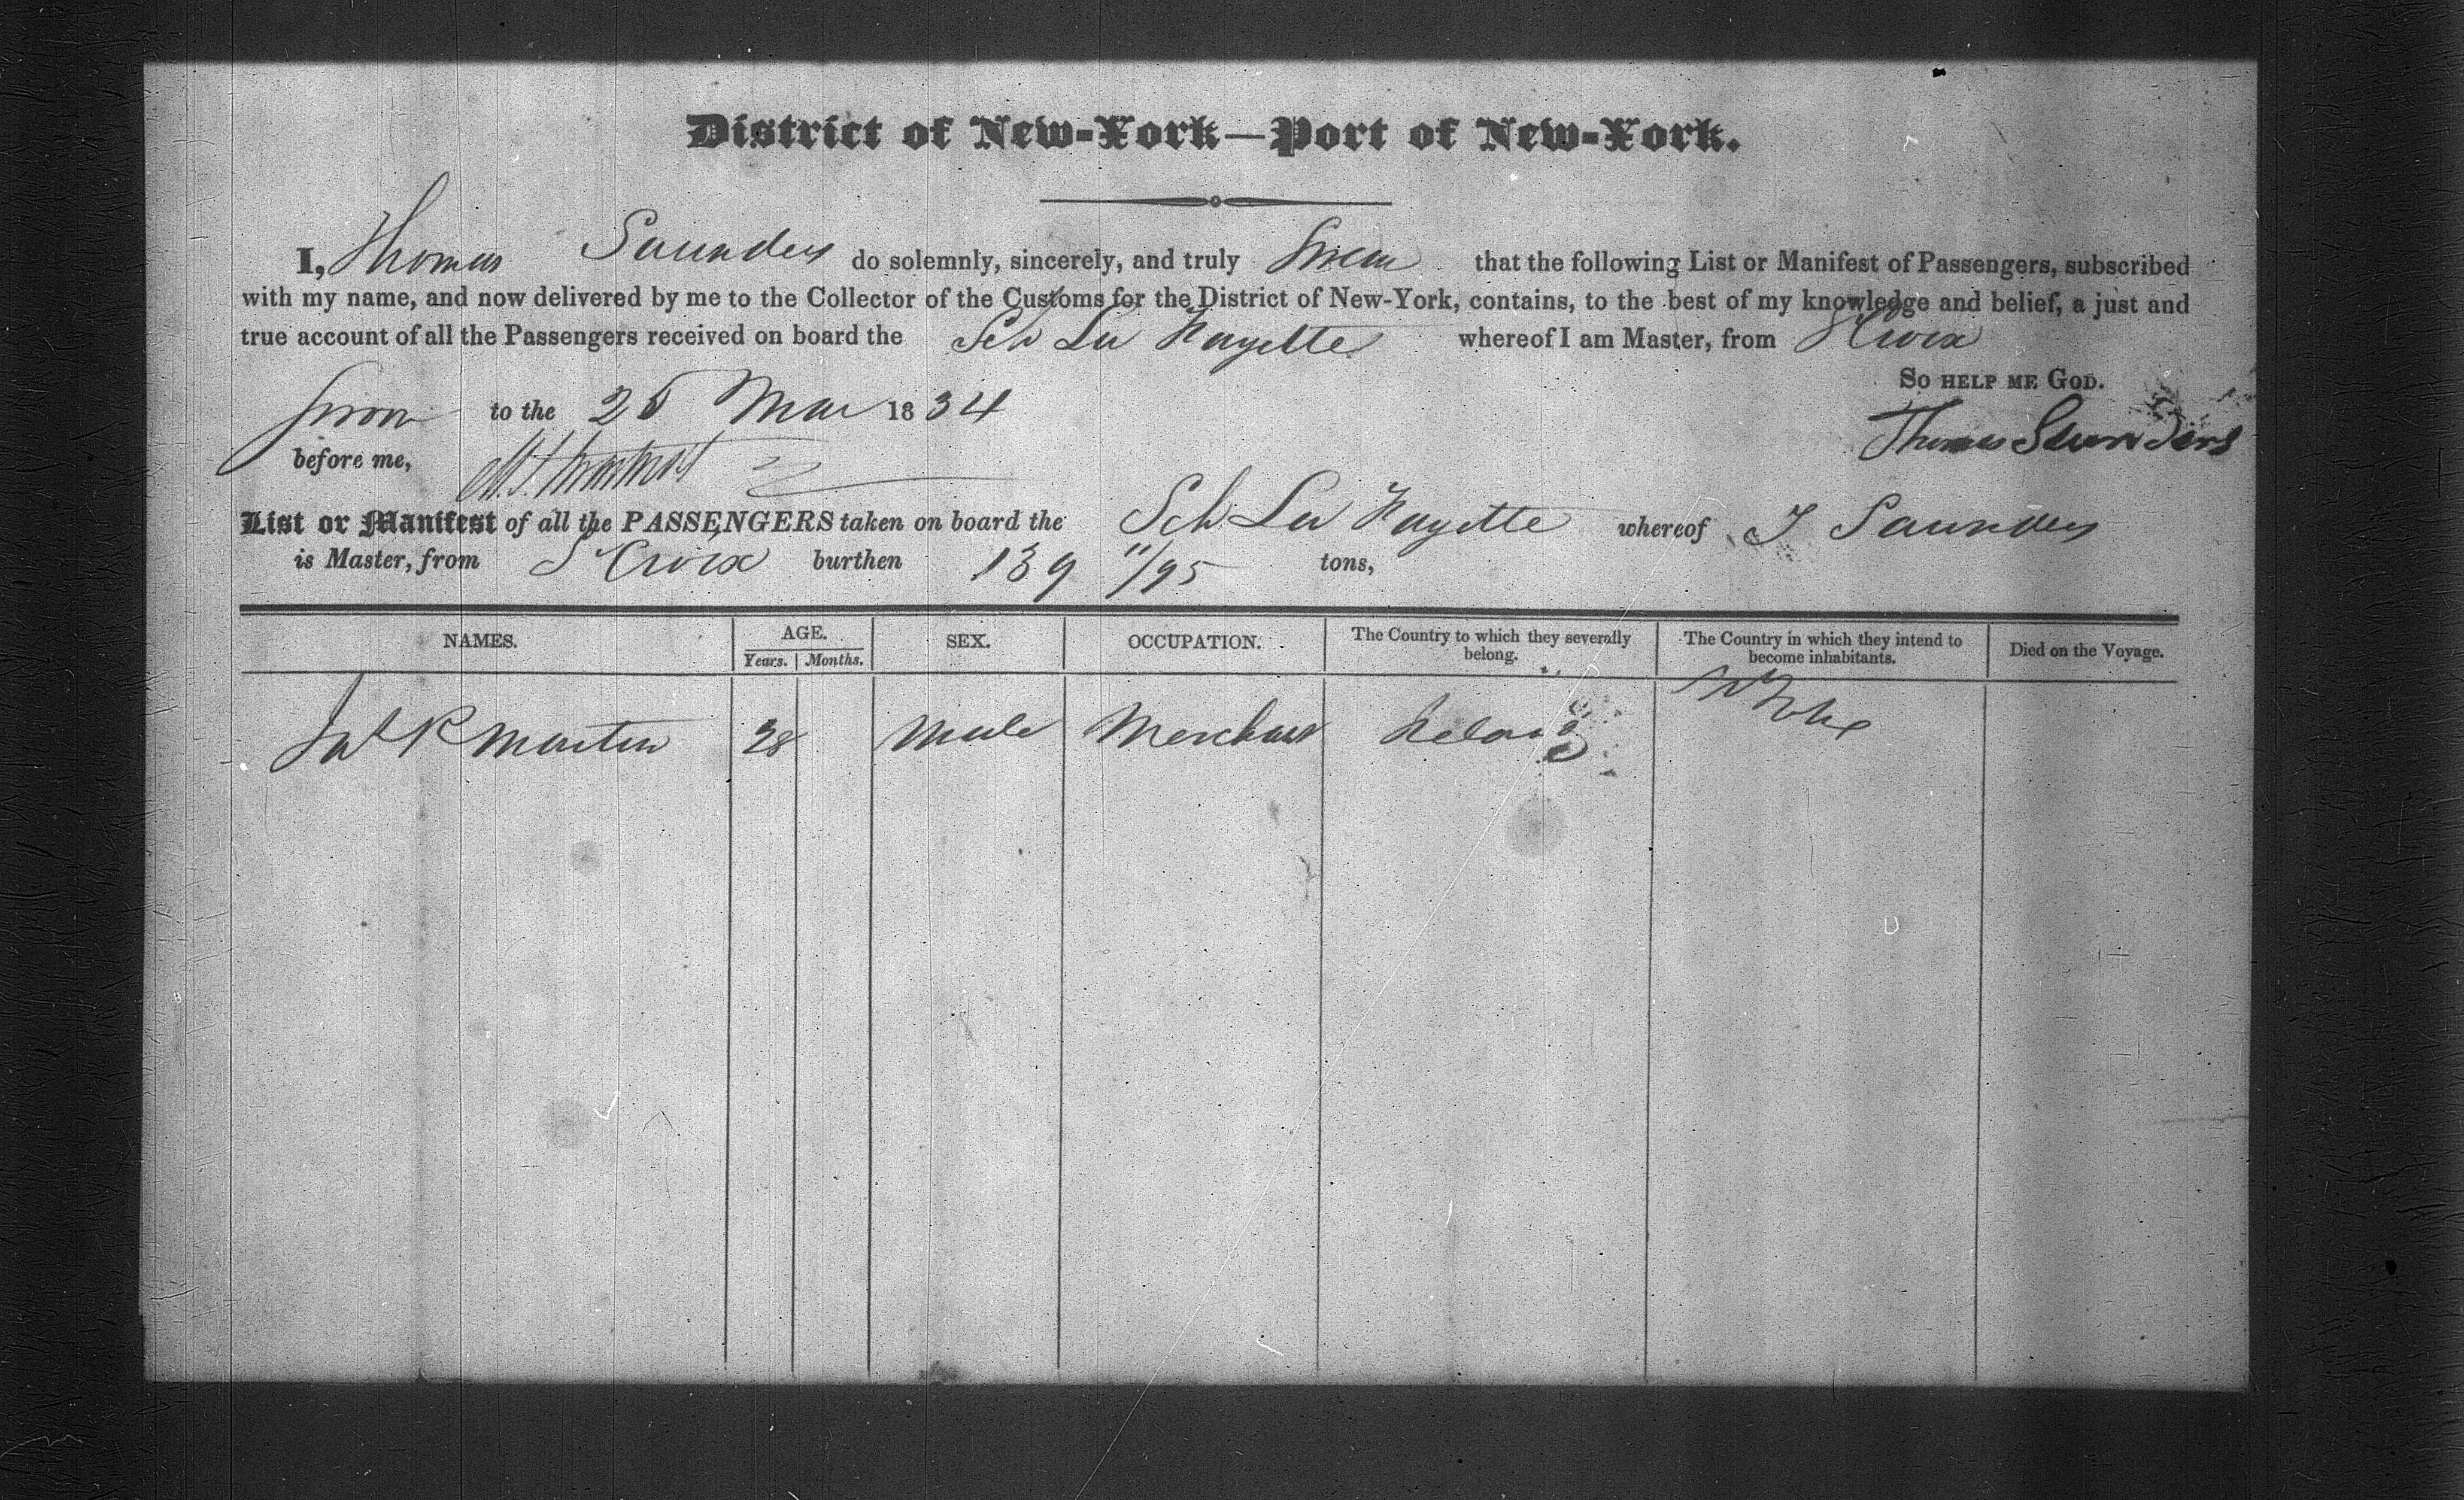 District of New-York—Port of New-York.
I, Thomas Saunders do solemnly, sincerely, and truly Swear that the following List or Manifest of Passengers, subscribed
with my name, and now delivered by me to the Collector of the Customs for the District of New-York, contains, to the best of my knowledge and belief, a just and
true account of all the Passengers received on board the Sch La Fayette whereof I am Master, from St Croix
So help me God.
Sworn to the 25 Mar 1834
Thomas Saunders
before me,
List or Manifest of all the PASSENGERS taken on board the Sch La Fayette whereof T Saunders
is Master, from St Croix burthen 139 11/95 tons,
NAMES. AGE. SEX. OCCUPATION. The Country to which they severally belong. The Country in which they intend to become inhabitants. Died on the Voyage.
Years. Months.
R Martin 28 Male Merchant